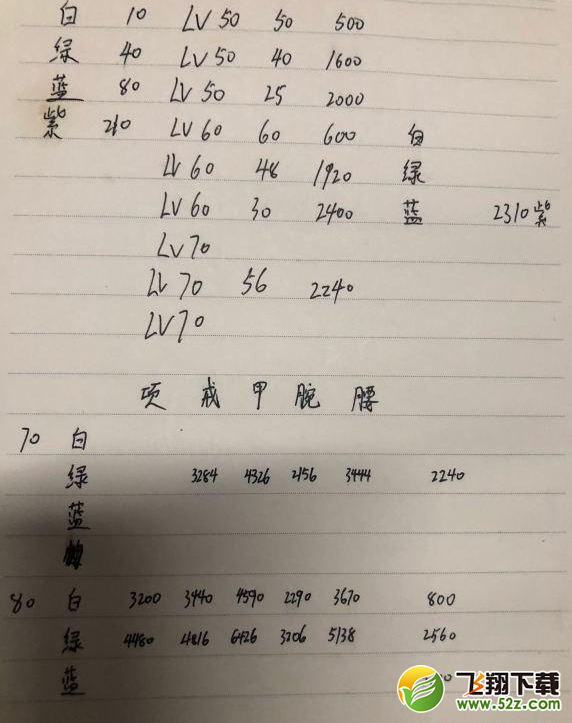 白 10 LV 50 50 500
绿 40 LV 50 40 1600
蓝 80 LV 50 25 2000
紫 210 LV 60 60 600 白
LV 60 48 1920 绿
LV 60 30 2400 蓝 2310 紫
LV 70
LV 70 56 2240
LV 70
项 戒 甲 腕 腰
70 白
绿 3284 4326 2156 3444 2240
蓝
80 白 3200 3440 4590 2290 3670 800
绿 4480 4816 6426 3206 5138 2560
蓝
飞翔下载
www.52z.com